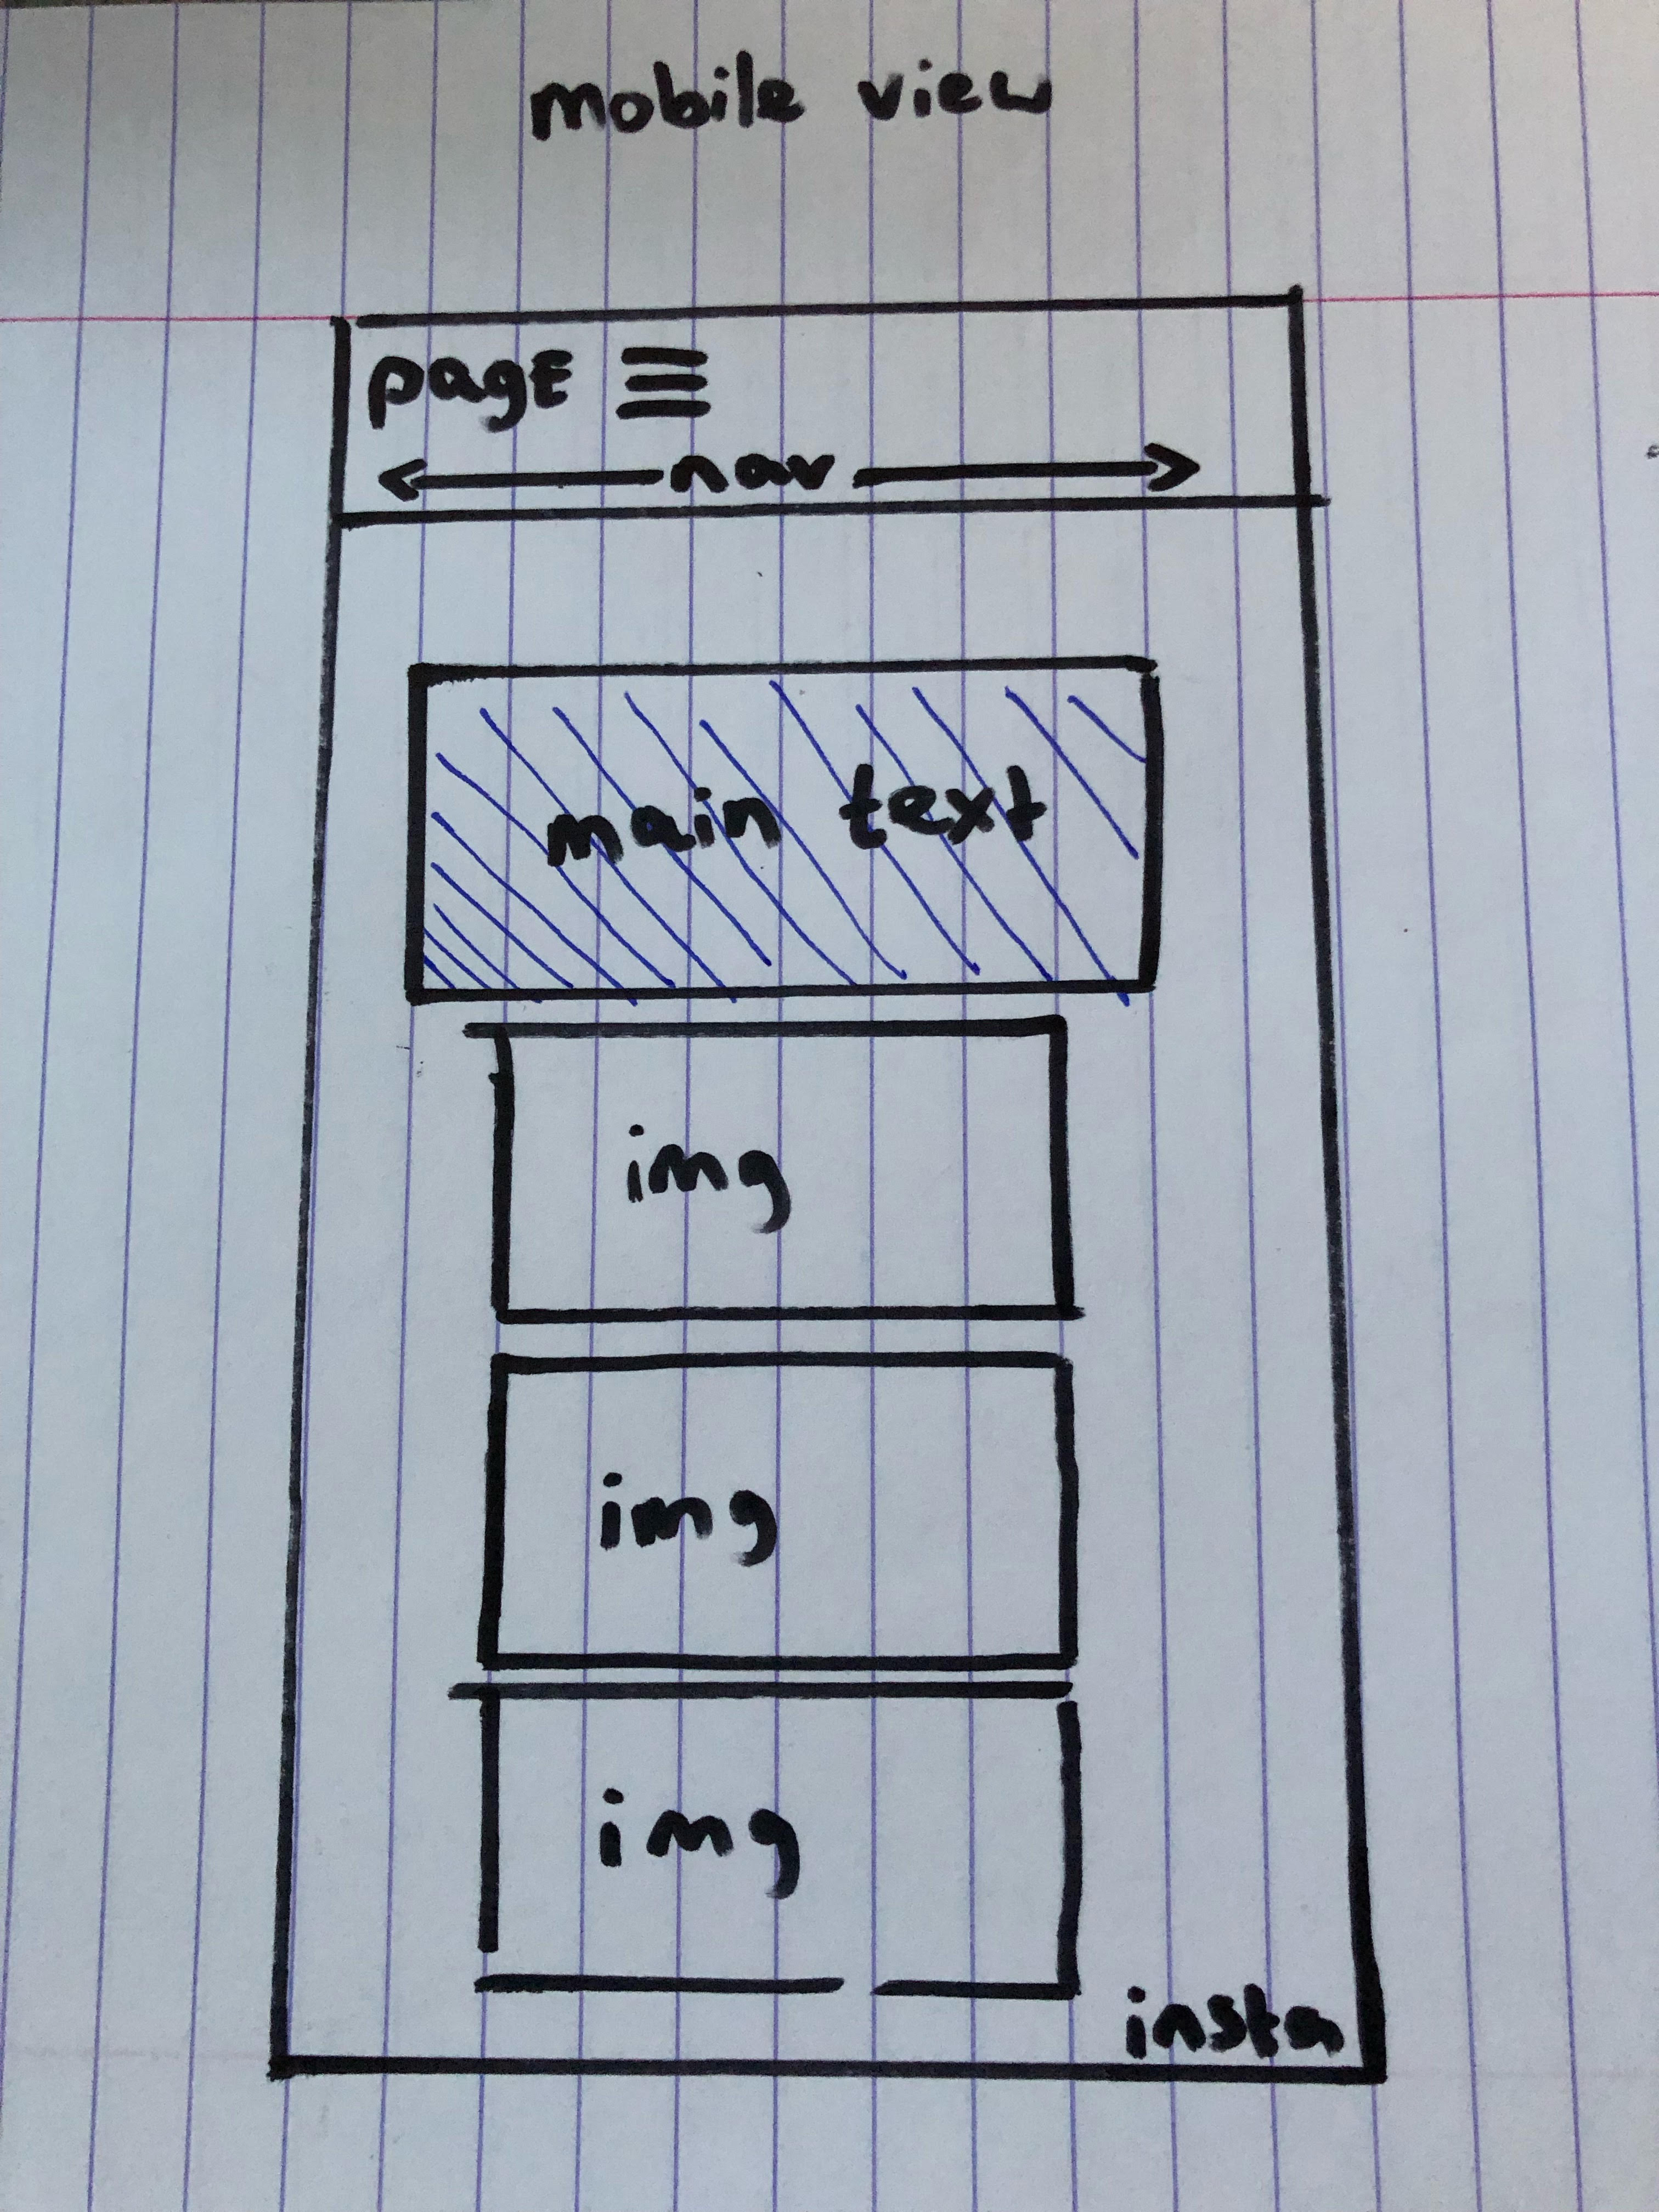 mobile view
page
nav
main text
img
img
img
insta